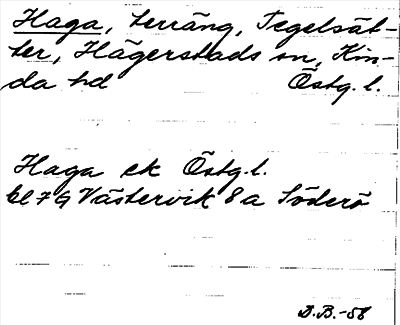 Haga, terräng, Tegelsät-
ter, Hägerstads sn, Kin-
da hd Östg. l.
Haga ek Östg. l.
bl 7 G Västervik 8 a Söderö
D.B.-56